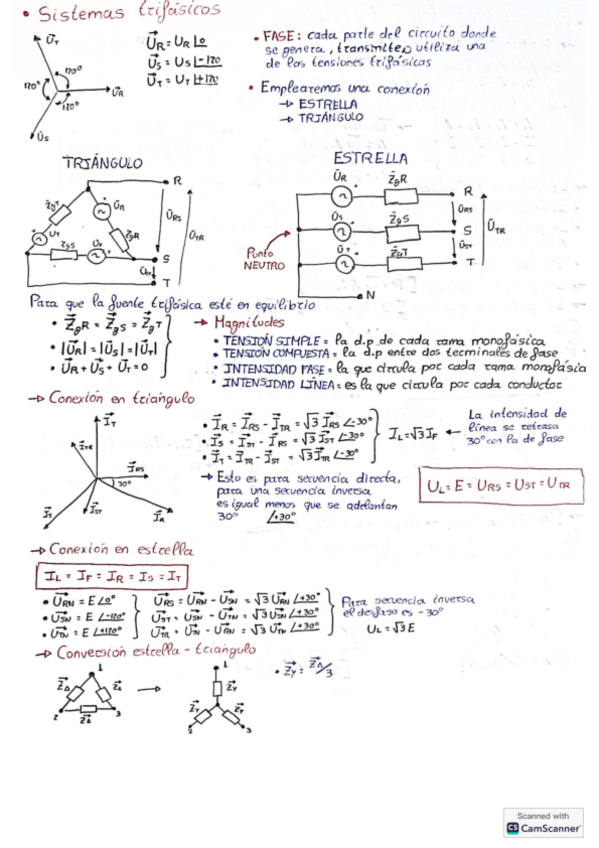 • Sistemas trifásicos
U_T
120°
120°
120°
U_R
U_S
U_R = U_R ∠0
U_S = U_S ∠-120
U_T = U_T ∠+120
• FASE: cada parte del circuito donde
se genera, transmite o utiliza una
de las tensiones trifásicas
• Emplearemos una conexión
→ ESTRELLA
→ TRIÁNGULO
TRIÁNGULO
R
ZgT
U_R
U_RS
U_TR
U_T
ZgS
ZgR
S
T
ESTRELLA
U_R
ZgR
R
U_RS
U_S
ZgS
S
U_TR
U_ST
U_T
ZgT
T
Punto
NEUTRO
N
Para que la fuente trifásica esté en equilibrio
• ZgR = ZgS = ZgT
• |U_R| = |U_S| = |U_T|
• U_R + U_S + U_T = 0
→ Magnitudes
• TENSIÓN SIMPLE = la d.p de cada rama monofásica
• TENSIÓN COMPUESTA = la d.p entre dos terminales de fase
• INTENSIDAD FASE = la que circula por cada rama monofásia
• INTENSIDAD LÍNEA = es la que circula por cada conductor
→ Conexión en triángulo
I_T
I_TR
I_RS
30°
I_S
I_ST
I_R
• I_R = I_RS - I_TR = √3 I_RS ∠-30°
• I_S = I_ST - I_RS = √3 I_ST ∠-30°
• I_T = I_TR - I_ST = √3 I_TR ∠-30°
I_L = √3 I_F ←
La intensidad de
línea se retrasa
30° con la de fase
→ Esto es para secuencia directa,
para una secuencia inversa
es igual menos que se adelantan
30° ∠+30°
U_L = E = U_RS = U_ST = U_TR
→ Conexión en estrella
I_L = I_F = I_R = I_S = I_T
• U_RN = E ∠0°
• U_SN = E ∠-120°
• U_TN = E ∠+120°
U_RS = U_RN - U_SN = √3 U_RN ∠+30°
U_ST = U_SN - U_TN = √3 U_SN ∠+30°
U_TR = U_TN - U_RN = √3 U_TN ∠+30°
Para secuencia inversa
el desfase es -30°
U_L = √3 E
→ Conversión estrella - triángulo
1
Z_Δ
Z_Δ
2
Z_Δ
3
→
1
Z_Y
Z_Y
Z_Y
2
3
• Z_Y = Z_Δ/3
Scanned with
CS CamScanner